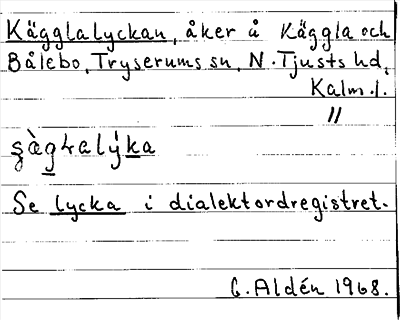 Kägglalyckan, åker å Käggla och
Bålebo, Tryserums sn, N. Tjusts hd,
Kalm. l.
"
Se lycka i dialektordregistret.
G. Aldén 1968.